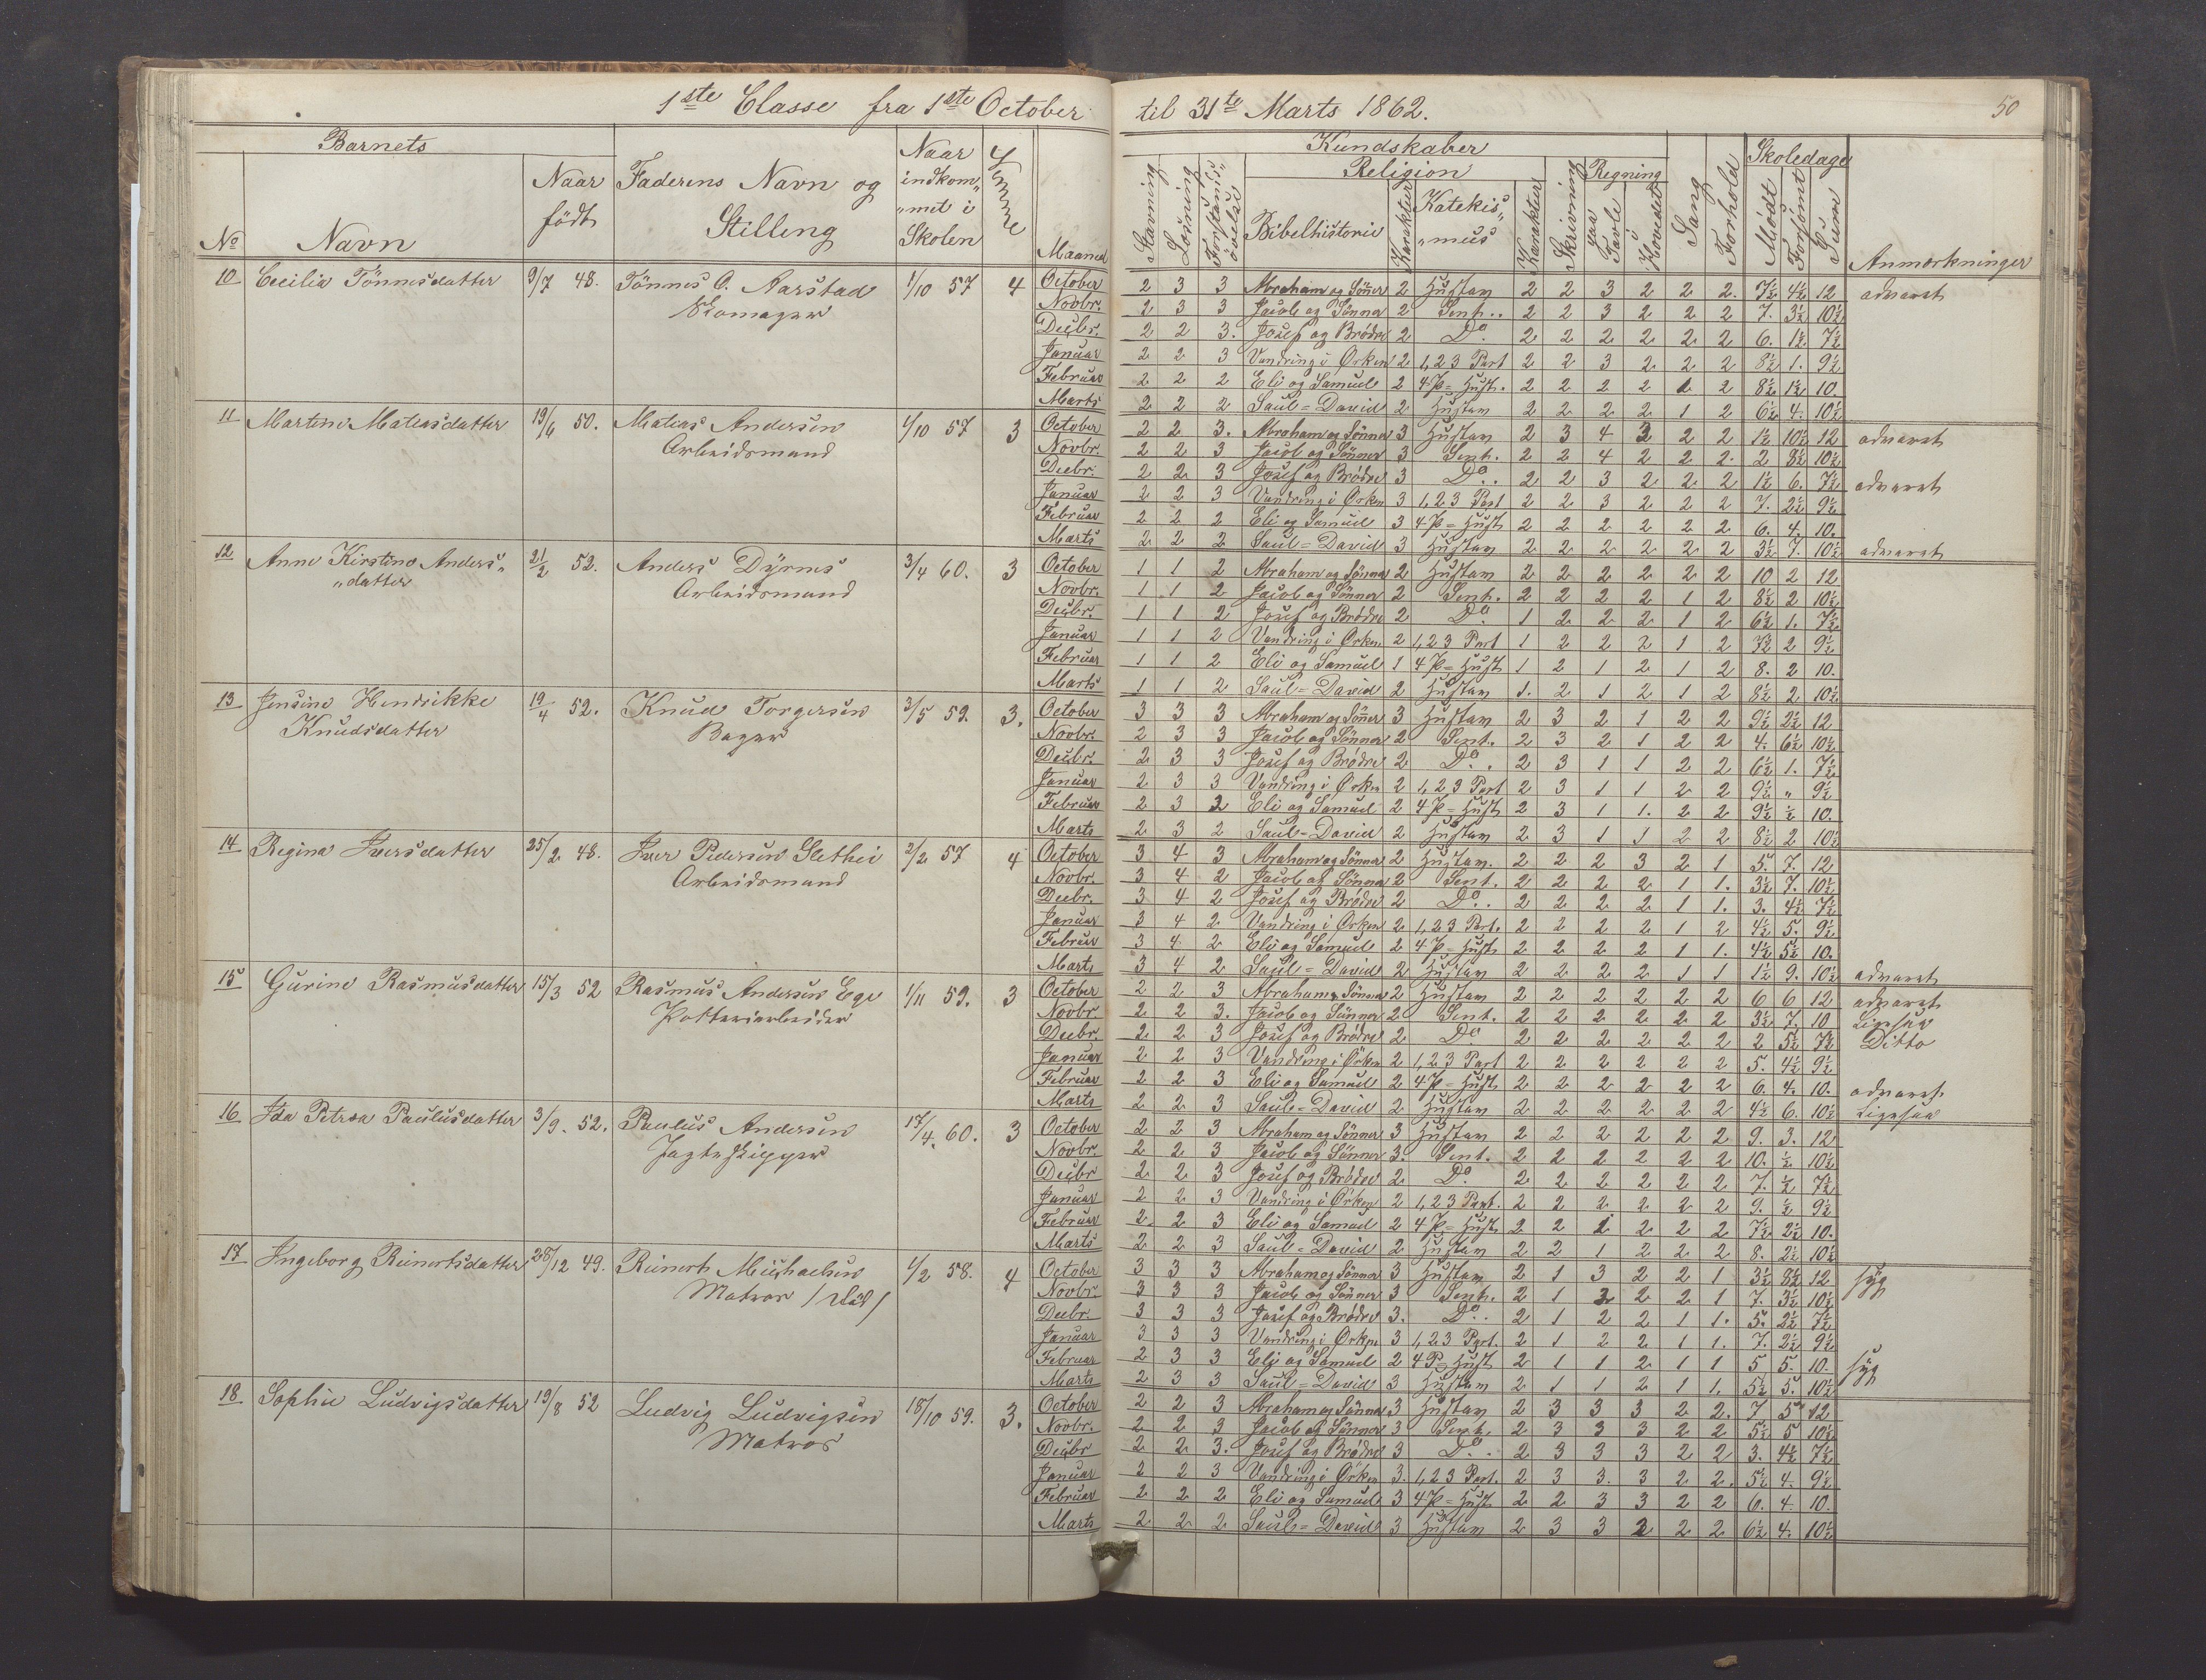 1ste Classe fra 1ste October til 31te Marts 1862. 50
Barnets
Naar indkom„ „met i Skolen
Evne
Kundskaber
Skoledage
Religion
Regning
No Navn
Naar født
Faderens Navn og Stilling
Maaned
Stavning Læsning Forstands„ øvelse Bibelhistorie Karakter Katekis„ „mus Karakter Skrivning paa Tavle i Hovedet Sang Forhold Mødt Forsømt Sum Anmærkninger
10 Cecilia Tönnesdatter 9/7 48. Tönnes O. Aarstad 1/10 57 4 October 2 3 3 Abraham og Sönner 2 Hustav 2 2 3 2 2 2. 7½ 4½ 12 advaret
Skomager Novbr. 2 3 3 Jacob og Sönner 2 Sent.. 2 2 3 2 2 2 7. 3½ 10½
Decbr. 2 2 3. Josef og Brødre 2 Do. 2 2 2 2 2 2 6. 1½ 7½
Januar 2 2 3 Vandring i Ørken 2 1,2 3 Part 2 2 3 2 2 2 8½ 1. 9½
Februar 2 2 2 Eli og Samuel 2 4 P = Hust. 2 2 2 2 1 2 8½ 1½ 10.
Marts 2 2 2 Saul = David 2 Hustav 2 2 2 2 1 2 6½ 4. 10½
11 Martine Mateasdatter 19/4 50. Mateas Andersen 1/10 57 3 October 2 2 3. Abraham og Sönner 3 Hustav 2 3 4 3 2 2 1½ 10½ 12 advaret
Arbeidsmand Novbr. 2 2 3 Jacob og Sönner 3 Sent. 2 2 4 2 2 2. 2 8½ 10½
Decbr. 2 2 3 Josef og Brödre 3 Do.. 2 2 3 2 2 2 1½ 6. 7½ advaret
Januar 2 2 3 Vandring i Ørken 3 1,2 3 Part 2 2 3 2 2 2 7. 2½ 9½
Februar 2 2 2 Eli og Samuel 3 4 P = Hust 2 2 2 2 2 2 6. 4. 10.
Marts 2 2 2 Saul = David 3 Hustav 2 2 2 2 2 2 3½ 7. 10½ advaret
12 Anne Kirstine Anders„ 21/2 53. Anders Dyrnes 3/4 60. 3 October 1 1 2 Abraham og Sönner 2 Hustav 2 2 2 2 2 2 10 2 12
„datter Arbeidsmand Novbr. 1 1 2 Jacob og Sönner 2 Sent. 2 2 2 2 1 2 8½ 2 10½
Decbr. 1 1 2 Josef og Brödre 2 Do. 1 2 2 2 1 2 6½ 1. 7½
Januar 1 1 2 Vandring i Ørken 2 1,2 3 Part 1 2 2 2 1 2 7½ 2 9½
Februar 1 1 2 Eli og Samuel 1 4 P = Hust 1 2 1 2 1 2 8. 2 10.
Marts 1 1 2 Saul = David 2 Hustav 1. 2 1 2 1 2 8½ 2 10½
13 Jensine Hendrikke 19/4 52. Knud Torgersen 3/5 59. 3. October 3 3 3 Abraham og Sönner 3 Hustav 2 3 2 1 2 2 9½ 2½ 12
Knudsdatter Bager Novbr. 2 3 3 Jacob og Sönner 2 Sent. 2 3 2 1 2 2 4. 6½ 10½
Decbr. 2 3 3 Josef og Brödre 2 Do. . 2 3 1 1 2 2 6½ 1. 7½
Januar 2 3 3 Vandring i Ørken 2 1,2 3 Part 2 3 1 1 2 2 9½ „ 9½
Februar 2 3 2 Eli og Samuel 2 4 P = Hust 2 3 1 1. 2 2 9½ ½ 10.
Marts 2 3 2 Saul = David 2 Hustav 2 3 1 1 2 2 8½ 2 10½
14 Regina Iversdatter 25/2 48. Iver Pedersen Slethei 2/2 57 4 October 3 4 3 Abraham og Sönner 2 Hustav. 2 2 2 3 2 1 5. 7. 12
Arbeidsmand Novbr. 3 4 2 Jacob og Sönner 2 Sent. 2 2 2 2 1 1. 3½ 7. 10½
Decbr. 3 4 2 Josef og Brödre 2 Do.. 2 2 2 2 1 1. 3. 4½ 7½
Januar 3 4 2 Vandring i Ørken 2 1,2 3 Part. 2 2 2 2 1 2 4½ 5. 9½
Februar 3 4 2 Eli og Samuel 2 4 P = Hust. 2 2 2 2 1 1. 4½ 5½ 10.
Marts 3 4 2 Saul = David 2 Hustav 2 2 2 2 1 1 1½ 9. 10½ advaret
15 Gurine Rasmusdatter 15/3 52 Rasmus Andersen Ege 1/11 59. 3 October 2 2 3 Abraham og Sönner 2 Hustav 2 2 2 2 2 2 6 6 12 advaret
Potteriarbeider Novbr. 2 2 3. Jacob og Sönner 2 Sent. 2 2 2 2 2 2 3½ 7. 10 Ligesaa
Decbr. 2 2 3 Josef og Brödre 2 Do 2 2 2 2 2 2 2 5½ 7½ Ditto
Januar 2 2 3 Vandring i Örken 2 1,2 3 Part 2 2 2 2 2 2 5. 4½ 9½
Februar 2 2 3 Eli og Samuel 2 4 P = Hust 2 2 2 2 2 2 6. 4. 10. advaret.
Marts 2 2 3 Saul = David 2 Hustav 2 2 2 2 2 2 4½ 6. 10½ Ligesaa
16 Ida Petrea Paulusdatter 3/9. 52. Paulus Andersen 17/4. 60. 3 October 2 2 3 Abraham og Sönner 3 Hustav 2 2 2 2 2 2 9. 3. 12
Jagteskipper Novbr. 2 2 3 Jacob og Sönner 3. Sent. 2 2 2 2 2 2 10. ½ 10½
Decbr 2 2 3 Josef og Brödre 2 Do. 2 2 2 2 2 2 7. ½ 7½
Januar 2 2 3 Vandring i Örken 2 1,2 3 Part. 2 2 2 2 2 2 9. ½ 9½
Februar 2. 2 3 Eli og Samuel 2 4 P = Hust 2 2 1 2 2 2 7½ 2½ 10.
Marts 2 2 3 Saul = David 2 Hustav 2 2 1 2 2 2 8. 2½ 10½
17 Ingeborg Reinertsdatter 28/12 49. Reinert Michaelsen 1/2 58. 4 October 3 3 3 Abraham og Sönner 3 Hustav 2 1 3 2 2 1 3½ 8½ 12 syg
Matros / död / Novbr. 3 3 3 Jacob og Sönner 3 Sent. 2 1 2 2 2 1 7. 3½ 10½
Decbr. 3 3 3 Josef og Brödre 3. Do.. 2 1 2 2 1 1. 5. 2½ 7½
Januar 3 3 3 Vandring i Ørken 3 1,2 3 Part. 2 1 2 2 1 1. 7. 2½ 9½
Februar 2 3 3 Eli og Samuel 2 4 P = Hust 2 1 1 2 1 1 5 5. 10. syg
Marts 2 3 3 Saul = David 3 Hustav 2 1 1 2 1 1. 5½ 5. 10½
18 Sophie Ludvigsdatter 19/8 52 Ludvig Ludvigsen 18/10 59. 3. October 2 2 3 Abraham og Sönner 3 Hustav 2 3 3 3 2 2. 7 5 12
Matros Novbr. 2 2 3 Jacob og Sönner 3 Sent. 2 3 3 3 2 2 5½ 5 10½
Decbr 2 2 3. Josef og Brödre 3 Do. . 2 3 3 3 2 2 3. 4½ 7½
Januar 2 2 3 Vandring i Örken 3. 1,2 3 Part. 2 3 3. 3 2 2. 5½ 4. 9½
Februar 2 2 2 Eli og Samuel 3 4 P = Hust. 2 2 3 3 2 2 6. 4. 10.
Marts 2 2 2 Saul = David 3 Hustav 2 3 3 2 2 2. 6½ 4. 10½